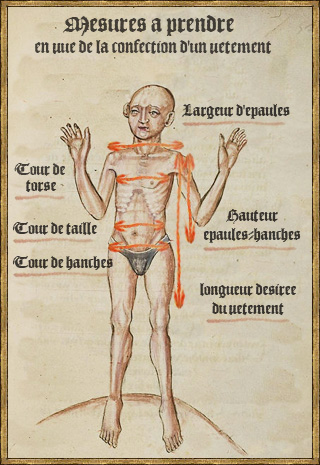 Mesures a prendre
en vue de la confection d'un vetement
Largeur d'epaules
Tour de
torse
Hauteur
epaules/hanches
Tour de taille
Tour de hanches
longueur desiree
du vetement